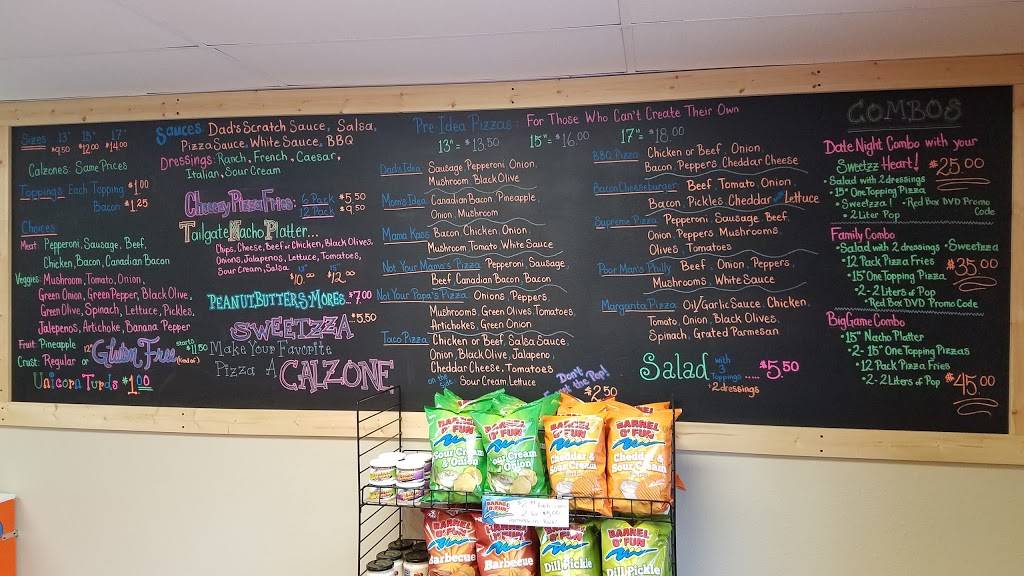 Sizes: 13" 15" 17"
$9.50 $12.00 $14.00
Calzones: Same Prices
Toppings: Each Topping $1.00
Bacon $1.25
Choices:
Meat: Pepperoni, Sausage, Beef,
Chicken, Bacon, Canadian Bacon
Veggies: Mushroom, Tomato, Onion,
Green Onion, Green Pepper, Black Olive,
Green Olive, Spinach, Lettuce, Pickles,
Jalepenos, Artichoke, Banana Pepper
Fruit: Pineapple
Crust: Regular or 12" Gluten Free starts $11.50
Unicorn Turds $1.00
Sauces: Dad's Scratch Sauce, Salsa,
Pizza Sauce, White Sauce, BBQ
Dressings: Ranch, French, Caesar,
Italian, Sour Cream
Cheesey Pizza Fries: 6 Pack $5.50
12 Pack $9.50
Tailgate Nacho Platter...
Chips, Cheese, Beef or Chicken, Black Olives,
Onions, Jalapenos, Lettuce, Tomatoes,
Sour Cream, Salsa
10.00 15" $12.00
Peanut Butter S'Mores... $7.00
Sweetzza $5.50
Make Your Favorite
Pizza A Calzone
Pre Idea Pizzas: For Those Who Can't Create Their Own
13" = $13.50 15" = $16.00 17" = $18.00
Dad's Idea: Sausage Pepperoni, Onion,
Mushroom, Black Olive
Mom's Idea: Canadian Bacon, Pineapple
Onion, Mushroom
Mama Kass: Bacon Chicken Onion
Mushroom Tomato White Sauce
Not Your Mama's Pizza: Pepperoni Sausage,
Beef Canadian Bacon, Bacon
Not Your Papa's Pizza: Onions, Peppers,
Mushrooms, Green Olives, Tomatoes,
Artichokes, Green Onion
Taco Pizza: Chicken or Beef, Salsa Sauce,
Onion, Black Olive, Jalapeno,
Cheddar Cheese, Tomatoes
on the side Sour Cream, Lettuce
BBQ Pizza: Chicken or Beef, Onion,
Bacon Peppers Cheddar Cheese
Bacon Cheeseburger: Beef, Tomato, Onion,
Bacon, Pickles, Cheddar Lettuce
Supreme Pizza: Pepperoni, Sausage, Beef,
Onion Peppers, Mushrooms,
Olives, Tomatoes
Poor Man's Philly: Beef, Onion, Peppers,
Mushrooms, White Sauce
Margarita Pizza: Oil/Garlic Sauce, Chicken,
Tomato, Onion, Black Olives,
Spinach, Grated Parmesan
Don't the Pop! $2.50
Salad with 3 toppings ..... $5.50
• 2 dressings
COMBOS
Date Night Combo with your
Sweetzz Heart! $25.00
• Salad with 2 dressings
• 15" One Topping Pizza
• Sweetzza! • Red Box DVD Promo Code
• 2 Liter Pop
Family Combo
• Salad with 2 dressings • Sweetzza
• 12 Pack Pizza Fries
• 15" One Topping Pizza $35.00
• 2-2 Liters of Pop
• Red Box DVD Promo Code
Big Game Combo
• 15" Nacho Platter
• 2-15" One Topping Pizzas
• 12 Pack Pizza Fries
• 2-2 Liters of Pop $45.00
BARREL O' FUN Sour Cream & Onion
BARREL O' FUN Sour Cream & Onion
BARREL O' FUN Cheddar & Sour Cream
BARREL O' FUN Cheddar & Sour Cream
BARREL O' FUN
BARREL O' FUN Barbecue
BARREL O' FUN Barbecue
BARREL O' FUN Dill Pickle
BARREL O' FUN Dill Pickle